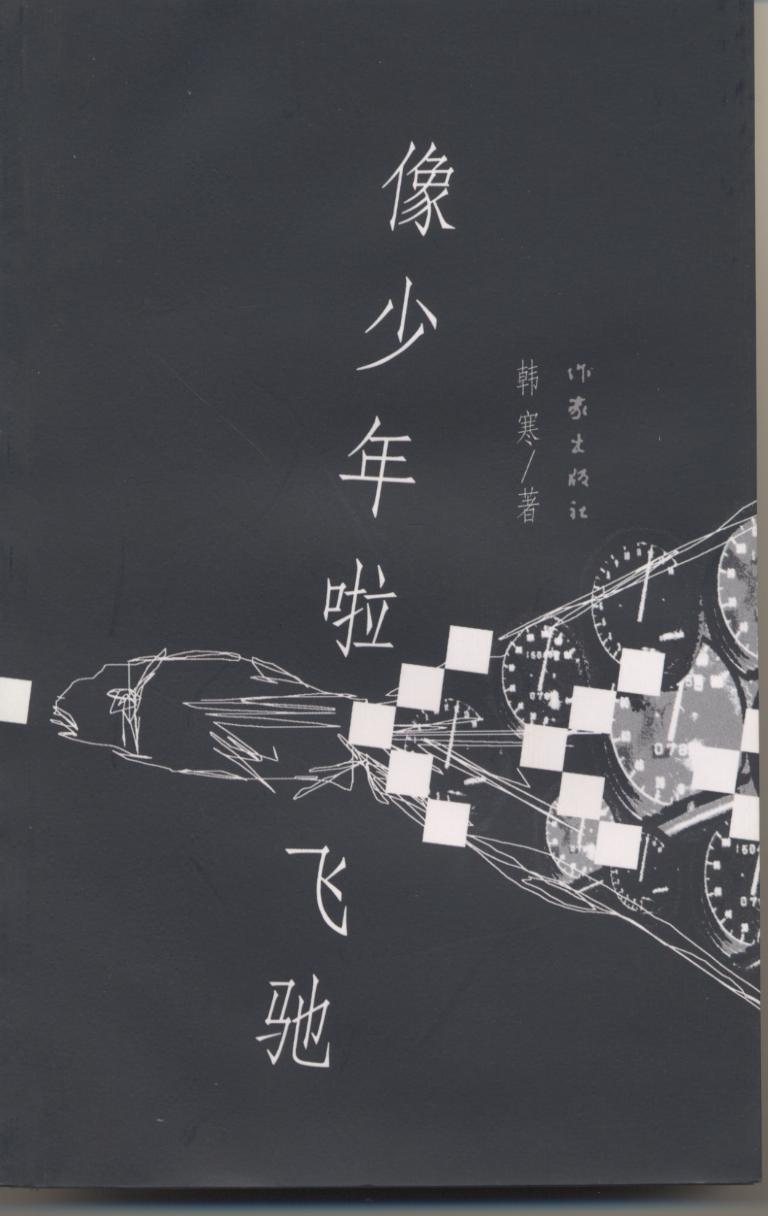 像少年啦飞驰
韩寒/著
作家出版社